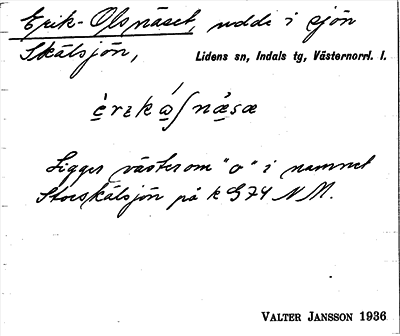 Erik-Olsnäset, udde i sjön
Skälsjön, Lidens sn, Indals tg, Västernorrl. l.
Ligger väster om "o" i namnet
Storskälsjön på k G74 NM.
VALTER JANSSON 1936